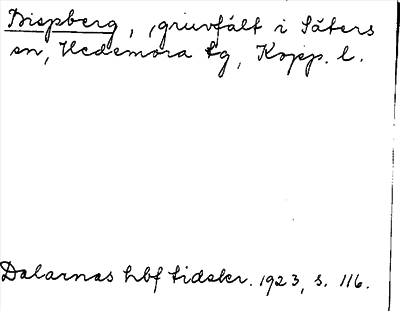 Bispberg, gruvfält i Säters
sn, Hedemora tg, Kopp. l.
Dalarnas hbf tidskr. 1923, s. 116.